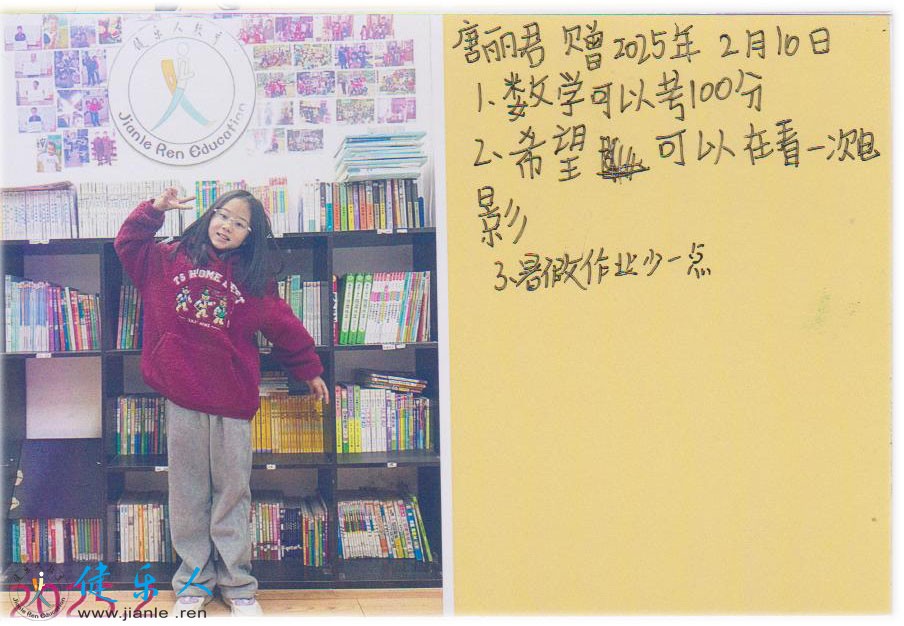 健乐人教育
Jianle Ren Education
TS HOME
健乐人
www.jianle .ren
Jianle Ren Education
唐丽君 赠 2025年 2月10日
1、数学可以考100分
2、希望 可以在看一次电
影
3、暑假作业少一点